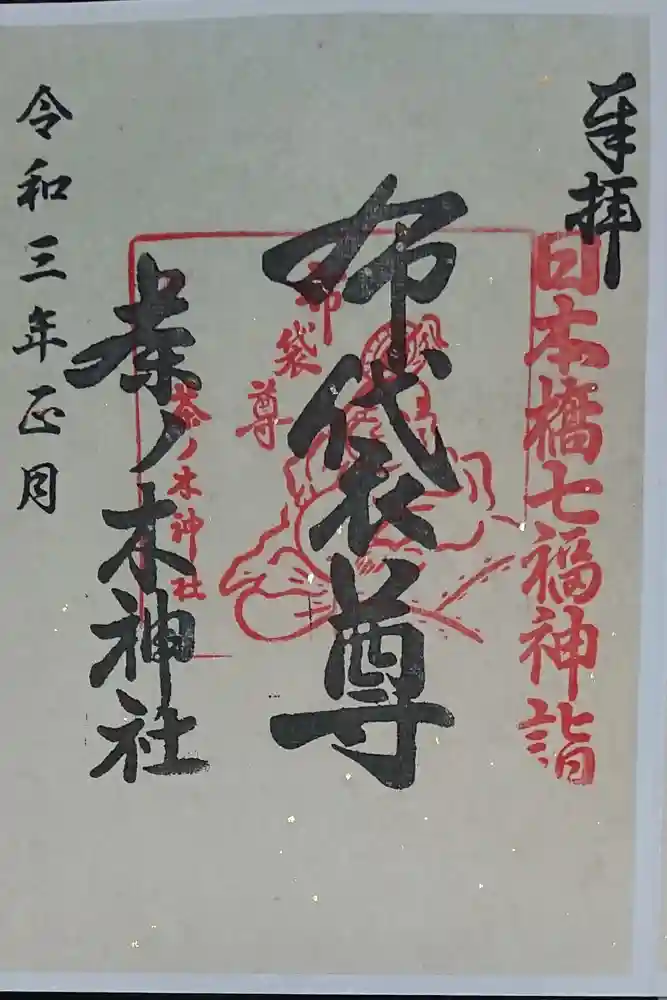 奉拝
日本橋七福神詣
布袋尊
布袋尊
茶ノ木神社
茶ノ木神社
令和三年正月